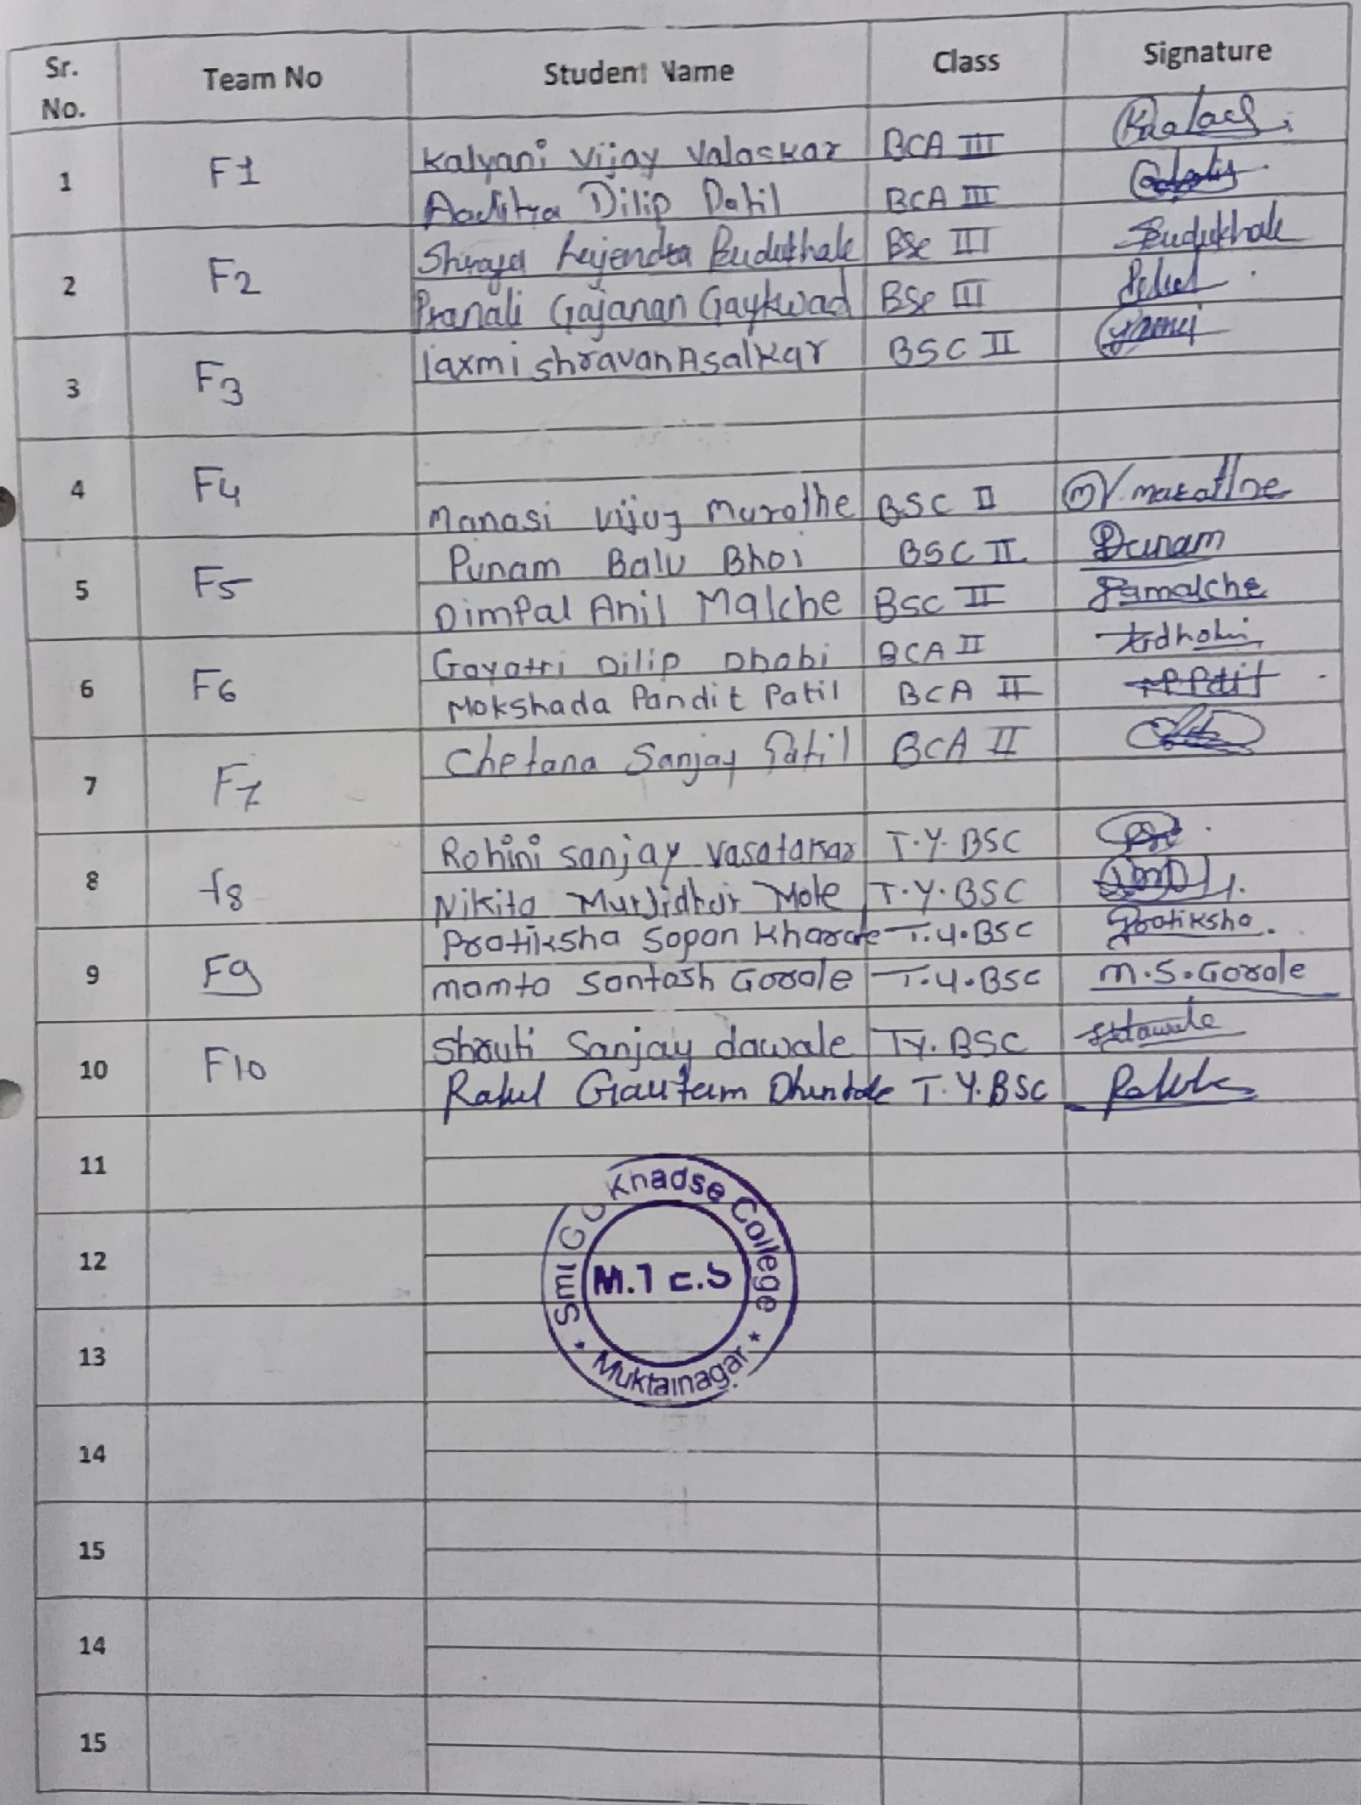 Sr. No. Team No Student Name Class Signature
1 F1 Kalyani Vijay Valaskar BCA III
Aaditya Dilip Patil BCA III
2 F2 Rajendra Budukhale BSc III Budukhale
Pranali Gajanan Gaykwad BSc III
3 F3 laxmi shravan Asalkar BSC II
4 F4
Manasi Vijay Marathe BSC II M V. marathe
5 F5 Punam Balu Bhoi BSC II Punam
Dimpal Anil Malche BSC II
6 F6 Gayatri Dilip Dhobi BCA II
Mokshada Pandit Patil BCA II
7 F7 Chetana Sanjay Patil BCA II
8 f8 Rohini sanjay vasatakar T.Y. BSC
Nikita Murlidhar Mole T.Y. BSC
9 F9 Pratiksha Sopan Kharate T.Y. BSC Pratiksha.
mamta Santosh Gorale T.Y. BSC M.S. Gorale
10 F10 Shruti Sanjay dawale TY. BSC
Rahul Gautam T.Y. BSC
11
12
13
14
15
14
15
Smt G Khadse College
M.T.E.S
* Muktainagar *